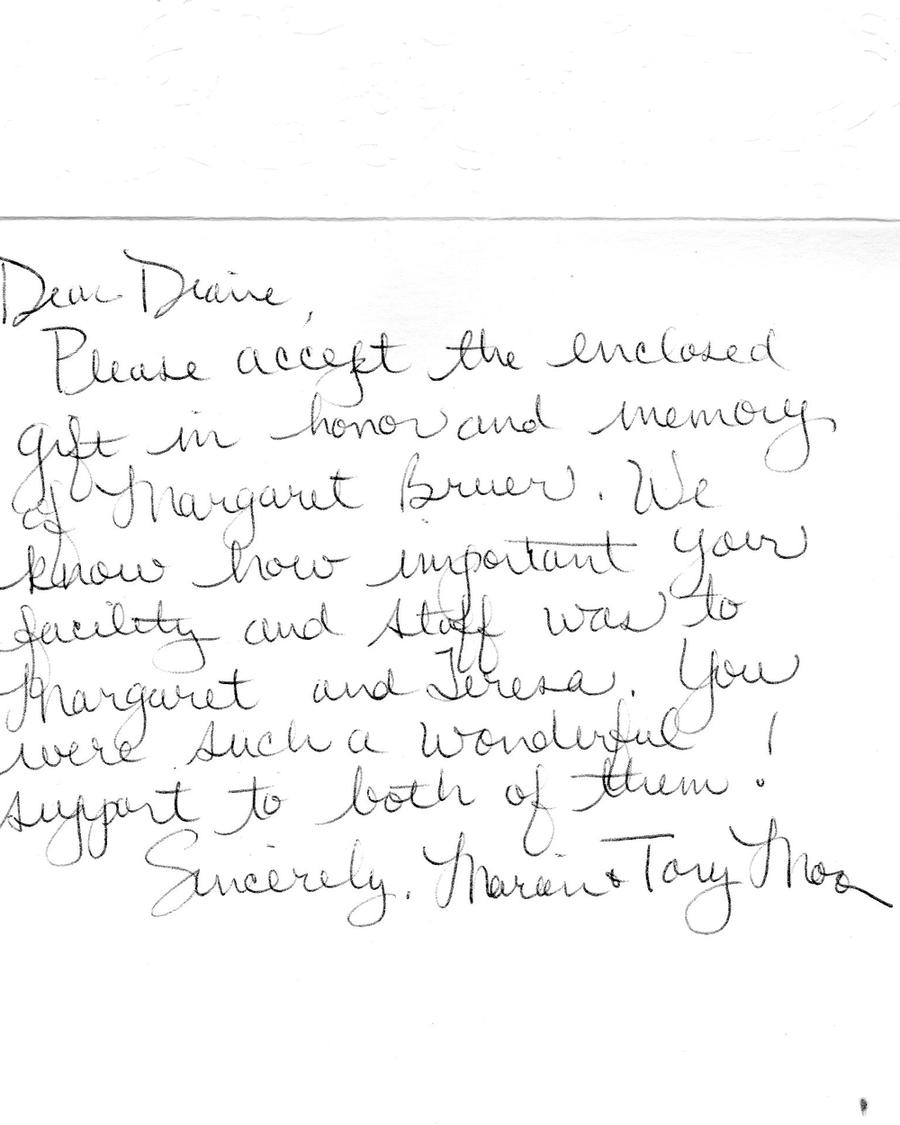 Dear Diane,
Please accept the enclosed
gift in honor and memory
of Margaret Bruer. We
know how important your
facility and staff was to
Margaret and Teresa. You
were such a wonderful
support to both of them!
Sincerely, Marion & Tory Moo